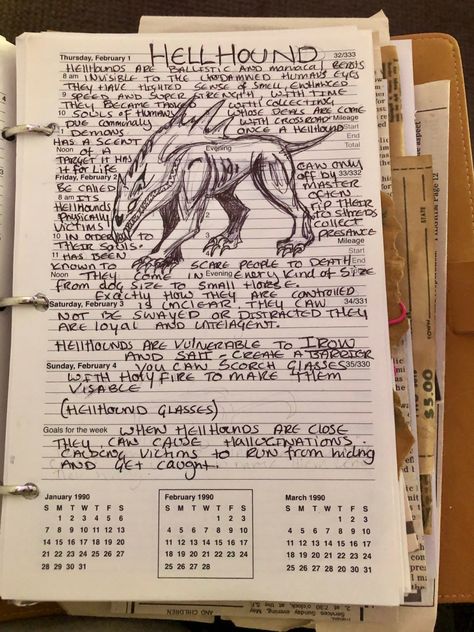 Thursday, February 1
HELLHOUND
32/333
HELLHOUNDS ARE BALLISTIC AND MANIACAL BEASTS
8 am INVISIBLE TO THE UNDAMNED HUMANS EYES
THEY HAVE HIGHTED SENSE OF SMELL, ENHANCED
9 SPEED AND SUPER STRENGTH WITH TIME
THEY BECAME TASKED WITH COLLECTING
10 SOULS OF HUMANS WHOSE DEALS ARE COME
DUE COMMONALLY WITH CROSSROAD Mileage
DEMONS ONCE A HELLHOUND Start
HAS A SCENT End
Noon OF A Evening Total
TARGET IT HAS CAN ONLY
IT FOR LIFE 33/332
Friday, February 2 OFF BY ITS
BE CALLED MASTER
8 am ITS OFTEN
HELLHOUNDS RIP THEIR
PHYSICALLY TO SHREDS
VICTIMS COLLECT
10 IN ORDER TO PRESANCE
THEIR SOULS. Mileage
11 HAS BEEN Start
KNOWN TO SCARE PEOPLE TO DEATH End
Noon THEY COME IN Evening EVERY KIND OF SIZE
FROM DOG SIZE TO SMALL HORSE.
EXACTLY HOW THEY ARE CONTROLLED
Saturday, February 3 IS UNCLEAR. THEY CAN 34/331
NOT BE SWAYED OR DISTRACTED THEY
ARE LOYAL AND INTELAGENT.
HELLHOUNDS ARE VULNERABLE TO IRON
AND SALT - CREATE A BARRIER
Sunday, February 4 YOU CAN SCORCH GLASSES 35/330
WITH HOLY FIRE TO MAKE THEM
VISABLE
(HELLHOUND GLASSES)
Goals for the week WHEN HELLHOUNDS ARE CLOSE
THEY CAN CAUSE HALLUCINATIONS.
CAUSING VICTIMS TO RUN FROM HIDING
AND GET CAUGHT.
January 1990 February 1990 March 1990
S M T W T F S S M T W T F S S M T W T F S
1 2 3 4 5 6 1 2 3 1 2
7 8 9 10 11 12 13 4 5 6 7 8 9 10 3 4 5 6 7 8 9
14 15 16 17 18 19 20 11 12 13 14 15 16 17 10 11 12 13 14 15 16
21 22 23 24 25 26 27 18 19 20 21 22 23 24 17 18 19 20 21 22 23
28 29 30 31 25 26 27 28 24 25 26 27 28 29 30
31
$5.00
AND CHILDREN